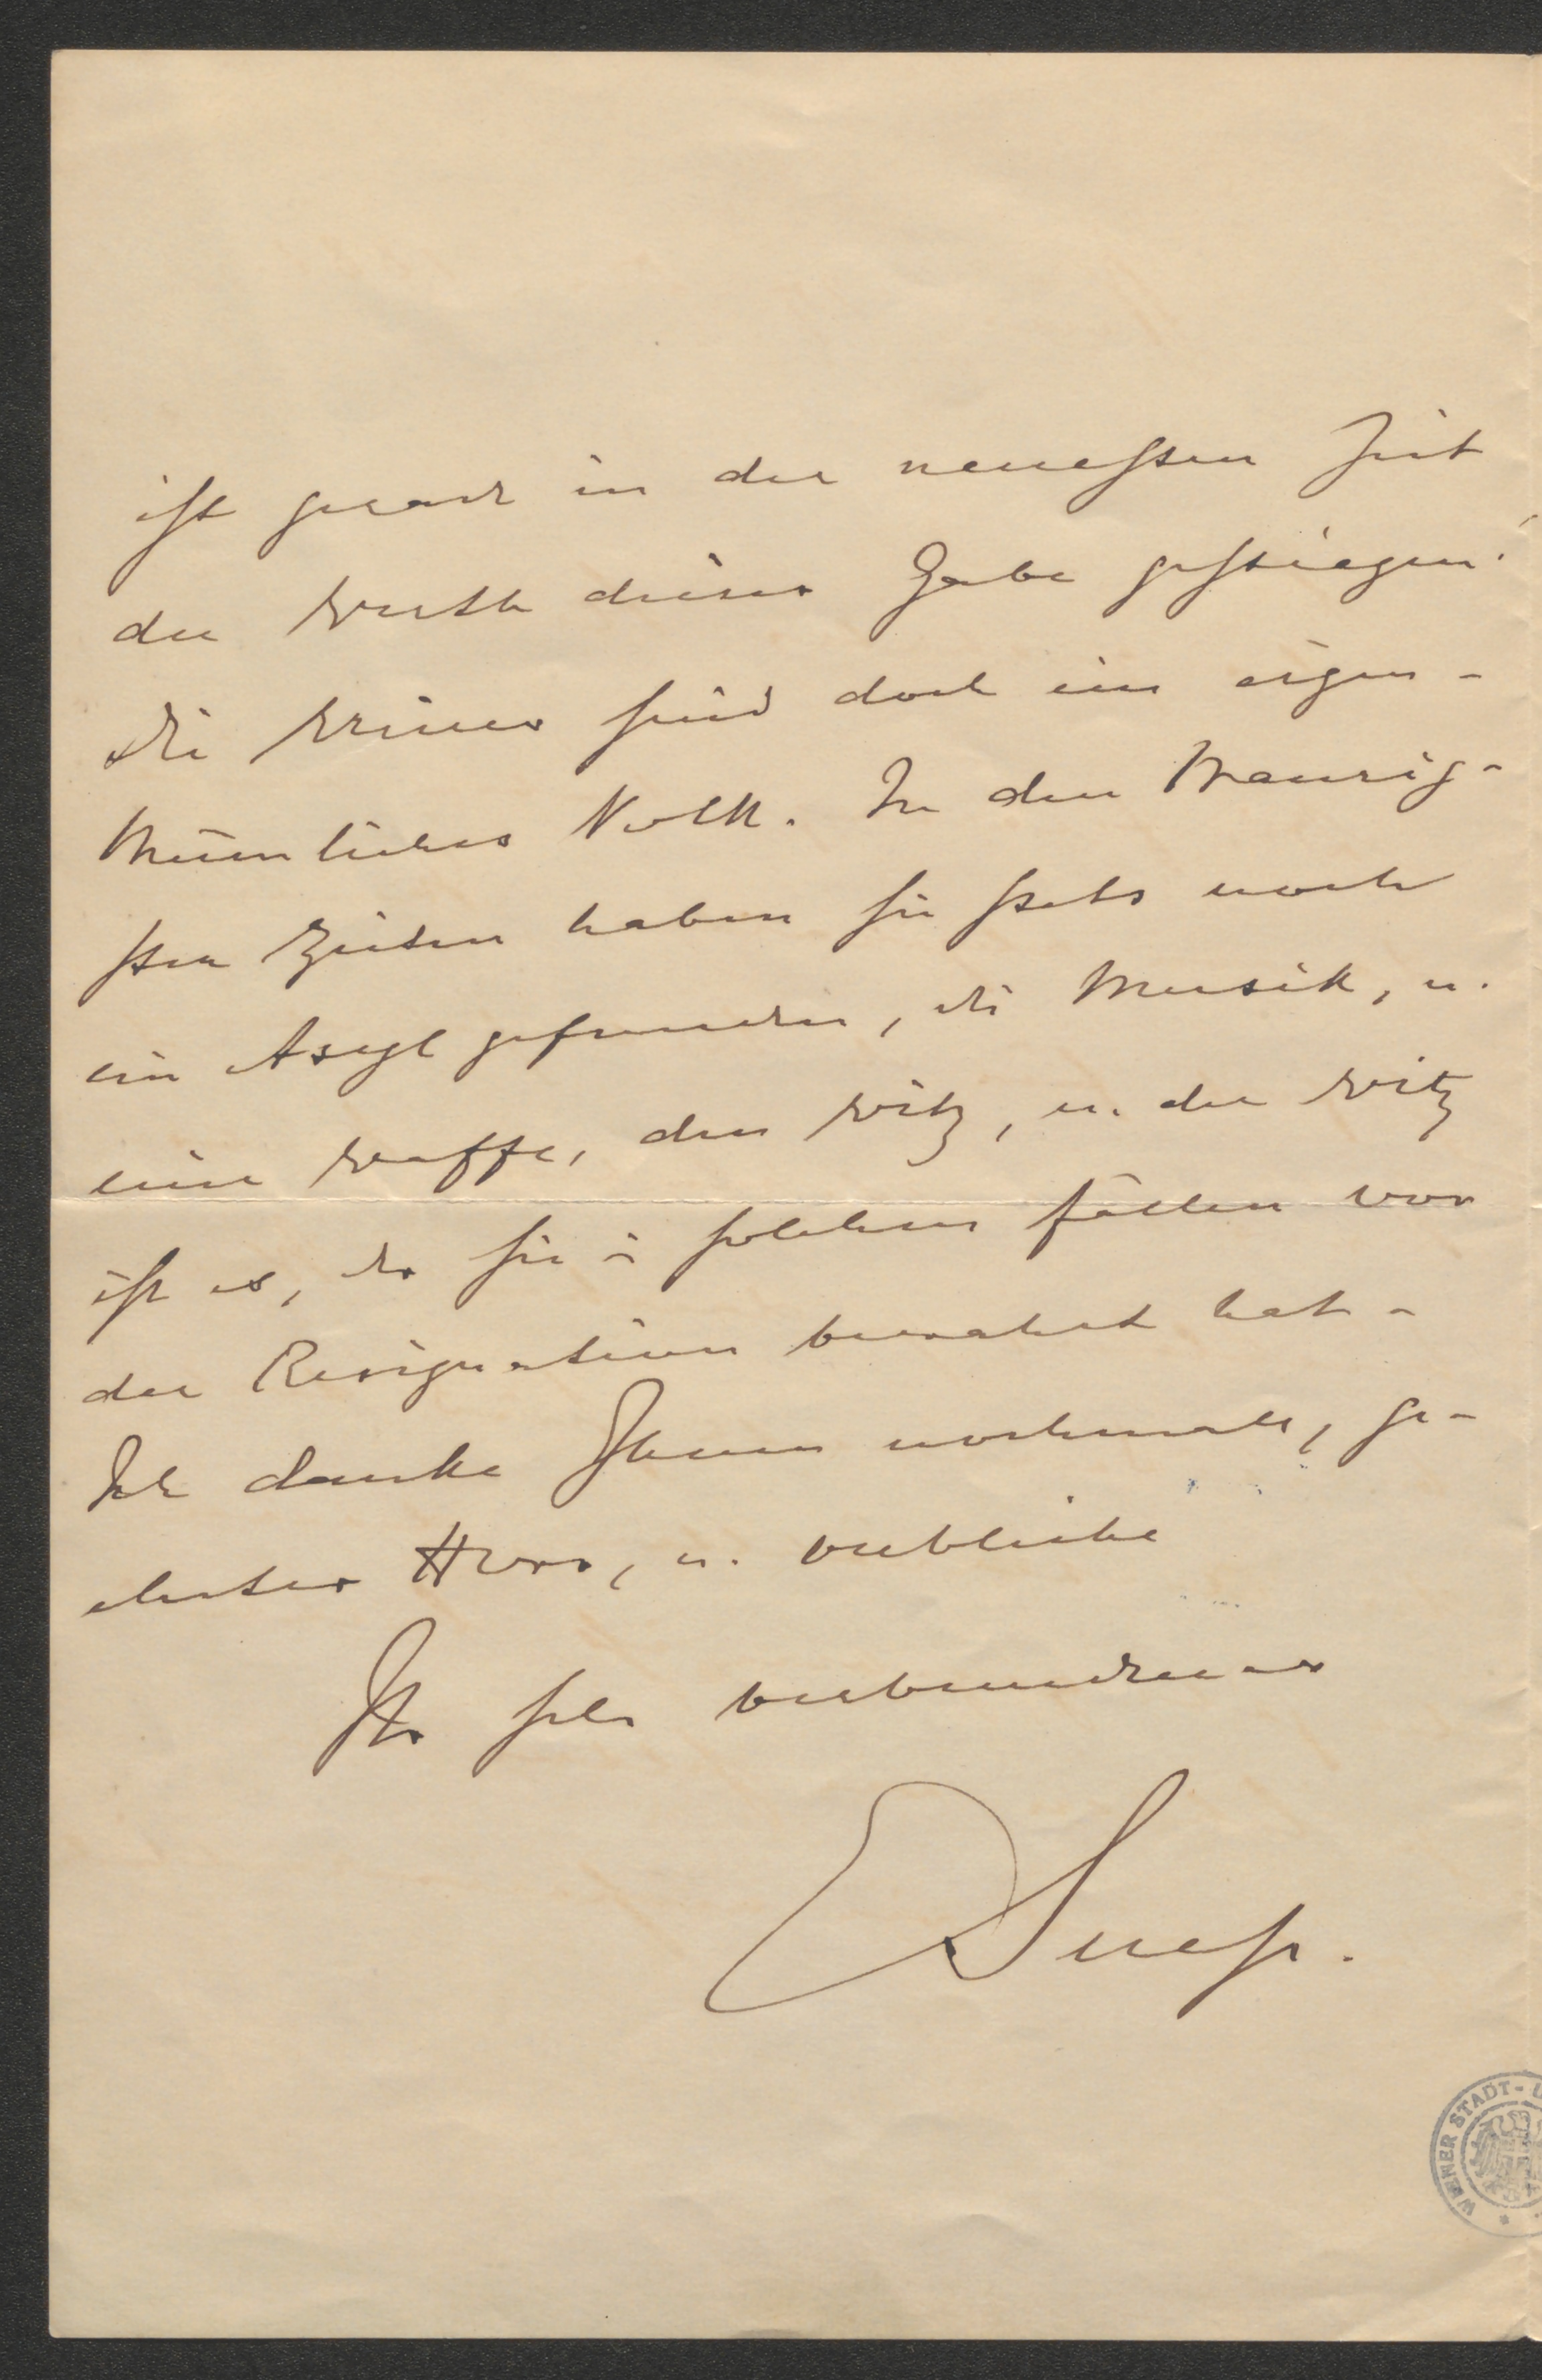 ist gerade in der neuesten Zeit
der Werth dieser Gabe gestiegen.
Die Wiener sind doch ein eigen-
thümliches Volk. In den traurig-
sten Zeiten haben sie stets noch
ein Asyl gefunden, die Musik, u.
eine Waffe, den Witz, u. der Witz
ist es, der sie in solchen Fällen vor
der Resignation bewahrt hat -
Ich danke Ihnen nochmals, ge-
ehrter Herr, u. verbleibe
Ihr sehr verbundener
ESuess.
WIENER STADT-